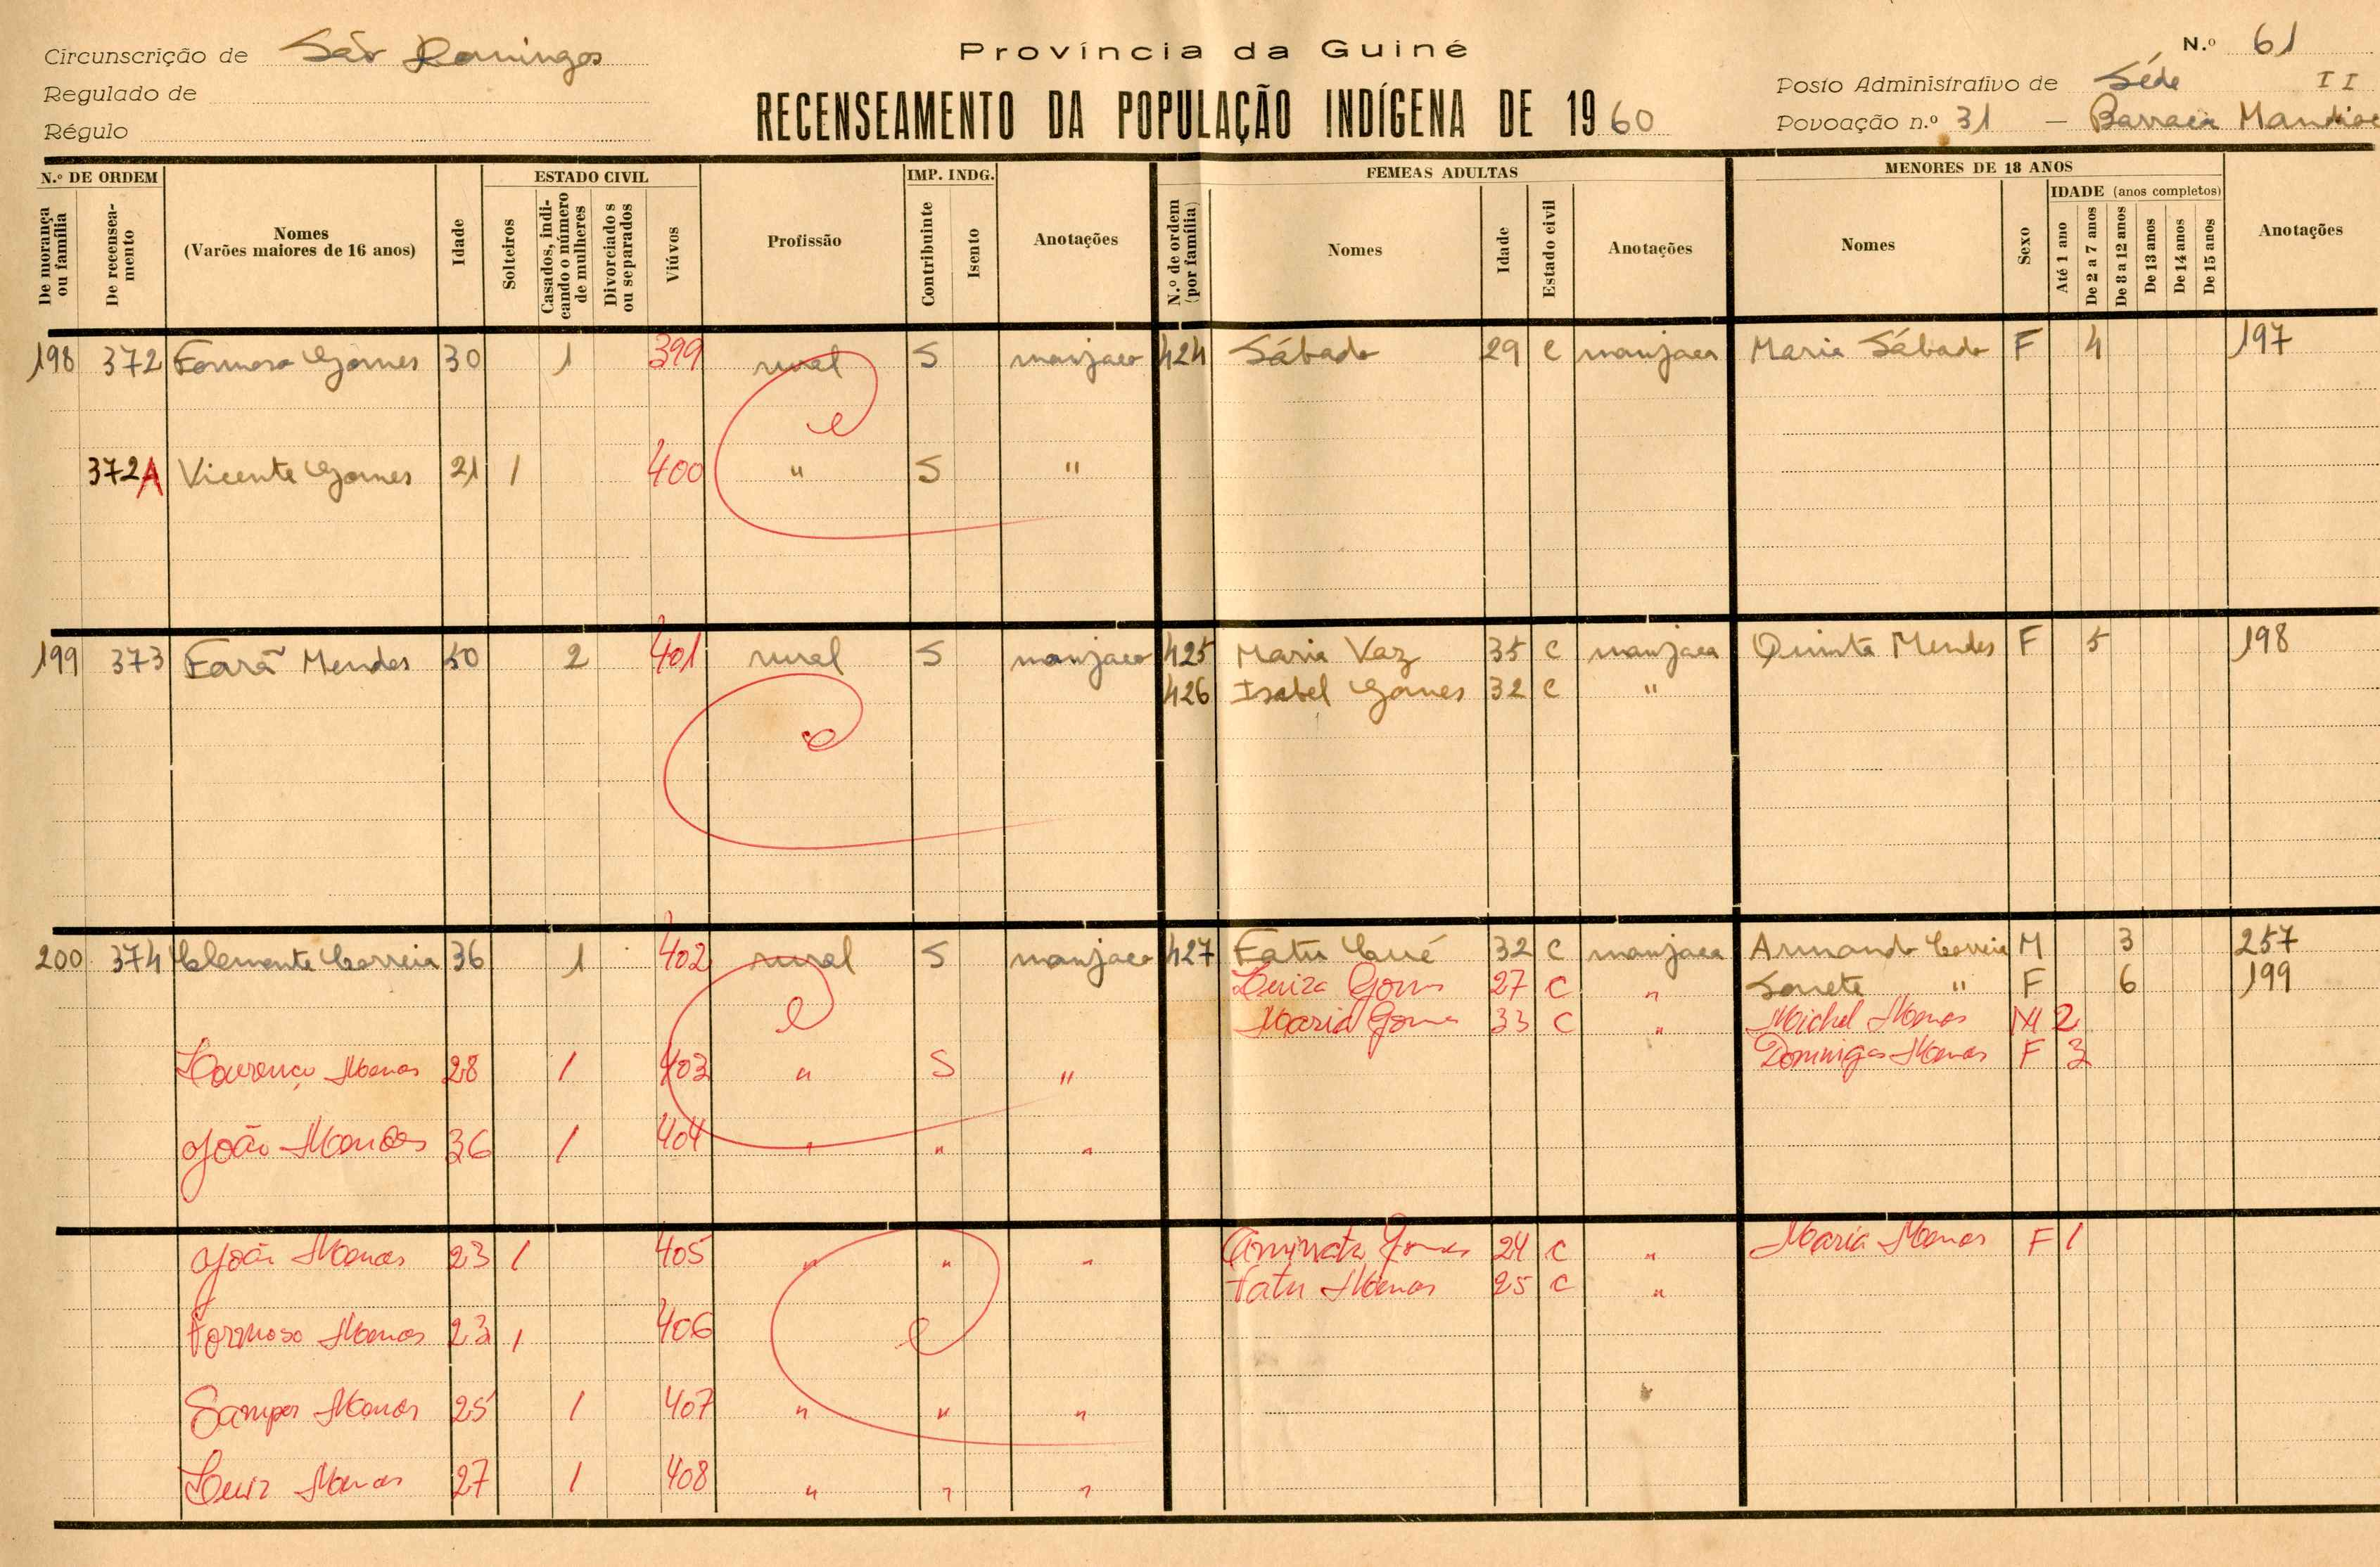 Circunscrição de São Domingos
Regulado de
Régulo
Província da Guiné
RECENSEAMENTO DA POPULAÇÃO INDÍGENA DE 1960
N.º 61
Posto Administrativo de Séde II
Povoação n.º 31 — Barraca
N.º DE ORDEM
De morança ou família
De recenseamento
Nomes
(Varões maiores de 16 anos)
Idade
ESTADO CIVIL
Solteiros
Casados, indicando o número de mulheres
Divorciados ou separados
Viúvos
Profissão
IMP. INDG.
Contribuinte
Isento
Anotações
FEMEAS ADULTAS
N.º de ordem (por família)
Nomes
Idade
Estado civil
Anotações
MENORES DE 18 ANOS
Nomes
Sexo
IDADE (anos completos)
Até 1 ano
De 2 a 7 anos
De 8 a 12 anos
De 13 anos
De 14 anos
De 15 anos
Anotações
198 372 Formoso Gomes 30 1 399 rural S manjaco 424 Sábado 29 C manjaca Maria Sábado F 4 197
372A Vicente Gomes 21 1 400 " S "
199 373 Fará Mendes 50 2 401 rural S manjaco 425 Maria Vaz 35 C manjaca Quinta Mendes F 5 198
426 Isabel Gomes 32 C "
200 374 Clemente Correia 36 1 402 rural S manjaco 427 Fatu 32 C manjaca Armando Correia M 3 257
Luiza Gomes 27 C " Sonete " F 6 199
Maria Gomes 33 C " Michel Mendes M 2
Domingas Mendes F 3
Lourenço Mendes 28 1 403 " S "
João Mendes 36 1 404 " " "
João Mendes 23 1 405 " " " Aminata Gomes 24 C " Maria Mendes F 1
Fatu Mendes 25 C "
Formoso Mendes 23 1 406
Mendes 25 1 407 " " "
Luiz Mendes 27 1 408 " " "